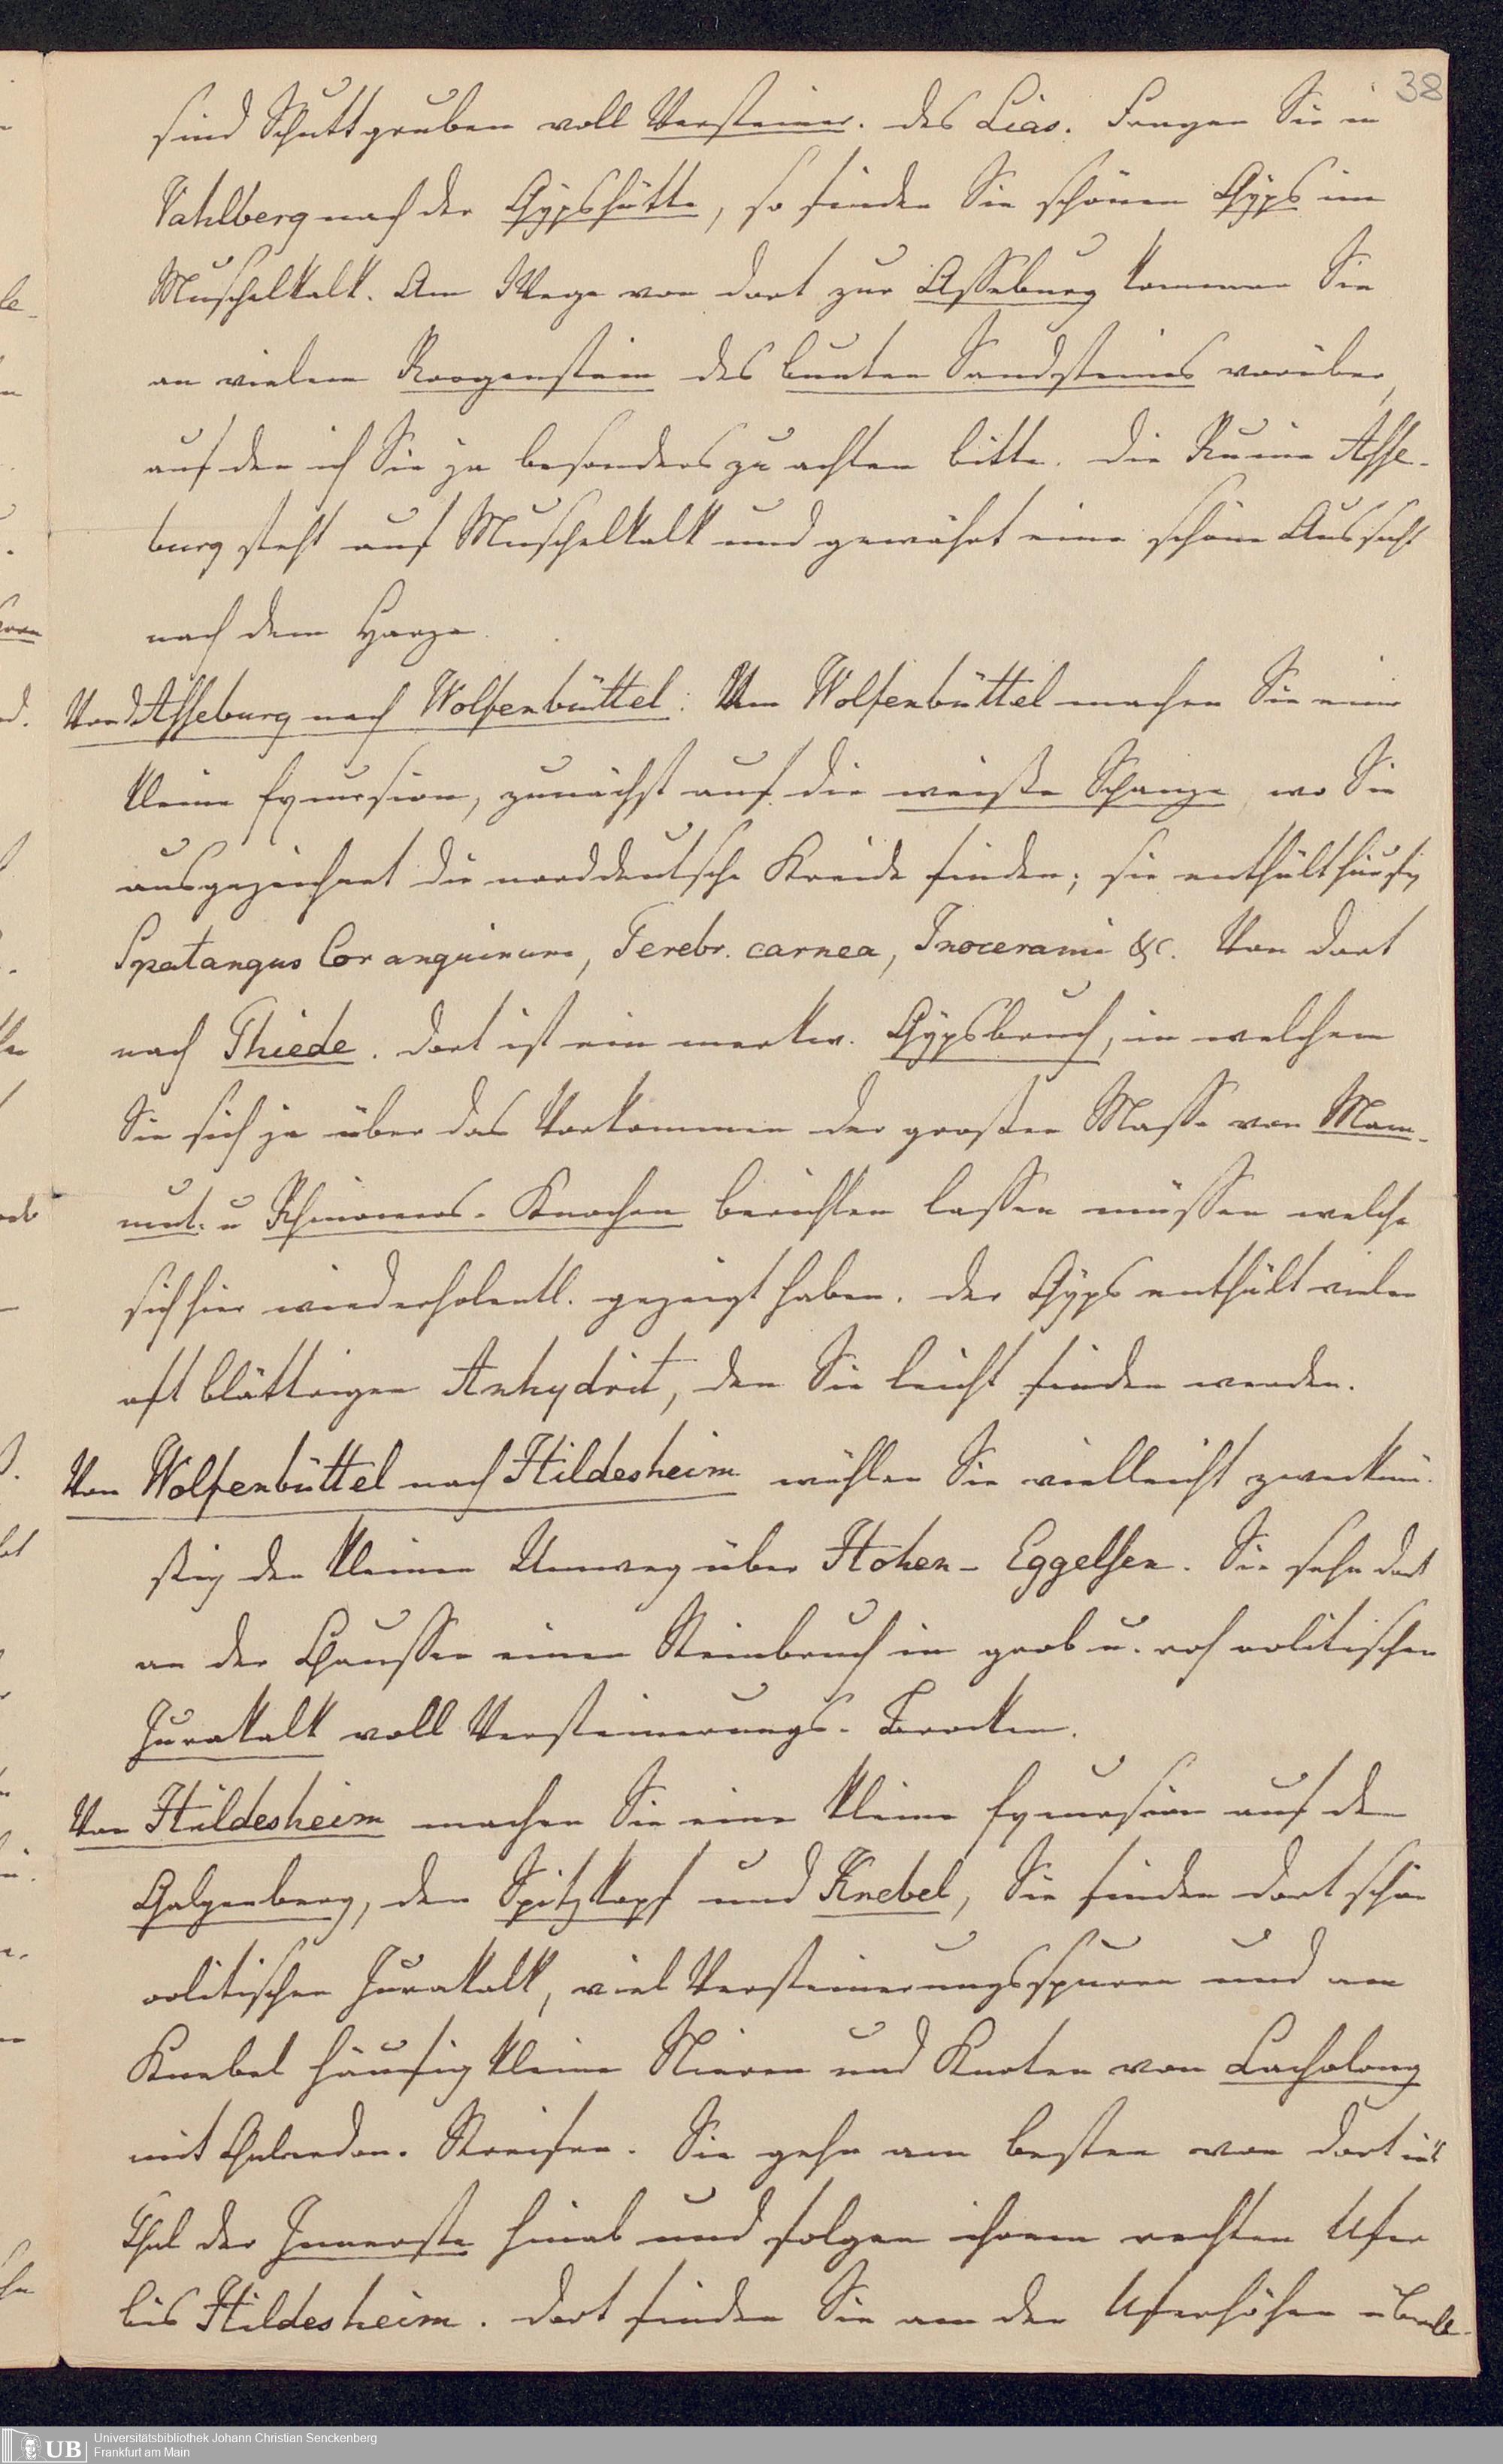 38
sind Schuttgruben voll Versteiner. des Lias. Fragen Sie in
Vahlberg nach der Gypshütte, so finden Sie schönen Gyps im
Muschelkalk. Am Wege von dort zur Asseburg kommen Sie
an vielem Roogenstein des bunten Sandsteines vorüber,
auf den ich Sie ja besonders zu achten bitte. Die Ruine Asse-
burg steht auf Muschelkalk und gewährt eine schöne Aussicht
nach dem Harze.
Von d Asseburg nach Wolfenbüttel: Um Wolfenbüttel machen Sie eine
kleine Excursion, zunächst auf die weiße Schanze, wo Sie
ausgezeichnet die norddeutsche Kreide finden; sie enthält häufig
Spatangus Cor anguinum, Terebr. carnea, Inocerami &c. Von dort
nach Thiede. Dort ist ein merkw. Gypsbruch, in welchem
Sie sich ja über das Vorkommen der großen Masse von Mam-
mut- u Rhinoceros-Knochen berichten lassen müssen welche
sich hier wiederholentl. gezeigt haben. Der Gyps enthält vielen
oft blättrigen Anhydrit, den Sie leicht finden werden.
Von Wolfenbüttel nach Hildesheim wählen Sie vielleicht zweckmä-
ßig den kleinen Umweg über Hohen-Eggelsen. Sie sehn dort
an der Chaussee einen Steinbruch in grob u. roh oolitischen
Jurakalk voll Versteinerungs-Brocken.
Von Hildesheim machen Sie eine kleine Excursion auf den
Galgenberg, den Spitzkopf und Knebel, Sie finden dort schön
oolitischen Jurakalk, viel Versteinerungsspuren und am
Knebel häufig kleine Nieren und Knoten von Cacholong
mit Chalcedon-Streifen. Sie gehn am besten von dort in's
Thal der Innerste hinab und folgen ihrem rechten Ufer
bis Hildesheim. Dort finden Sie an den Uferhöhen überall
UB
Universitätsbibliothek Johann Christian Senckenberg
Frankfurt am Main